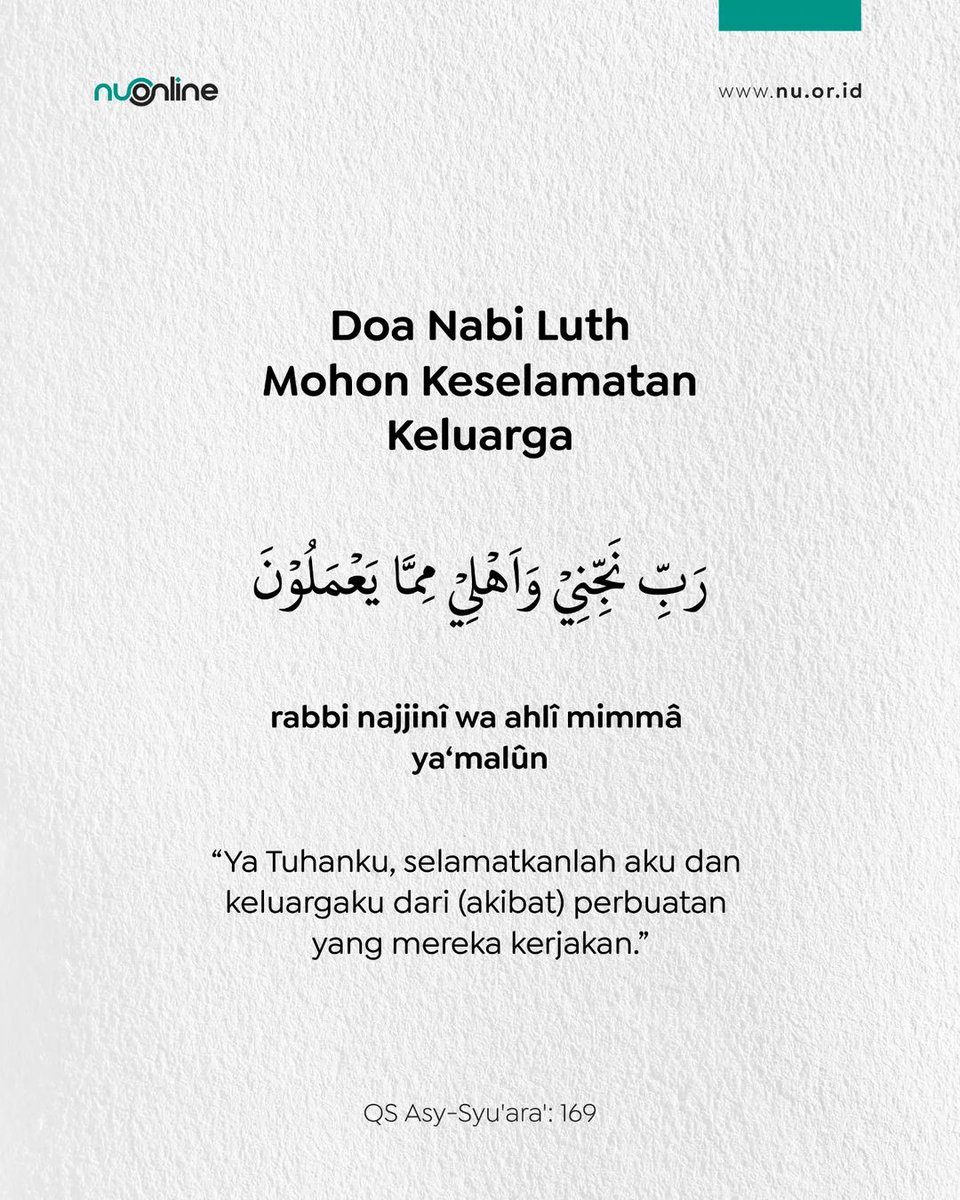 nuonline
www.nu.or.id
Doa Nabi Luth
Mohon Keselamatan
Keluarga
رَبِّ نَجِّنِيْ وَاَهْلِيْ مِمَّا يَعْمَلُوْنَ
rabbi najjinî wa ahlî mimmâ
ya‘malûn
“Ya Tuhanku, selamatkanlah aku dan
keluargaku dari (akibat) perbuatan
yang mereka kerjakan.”
QS Asy-Syu'ara': 169